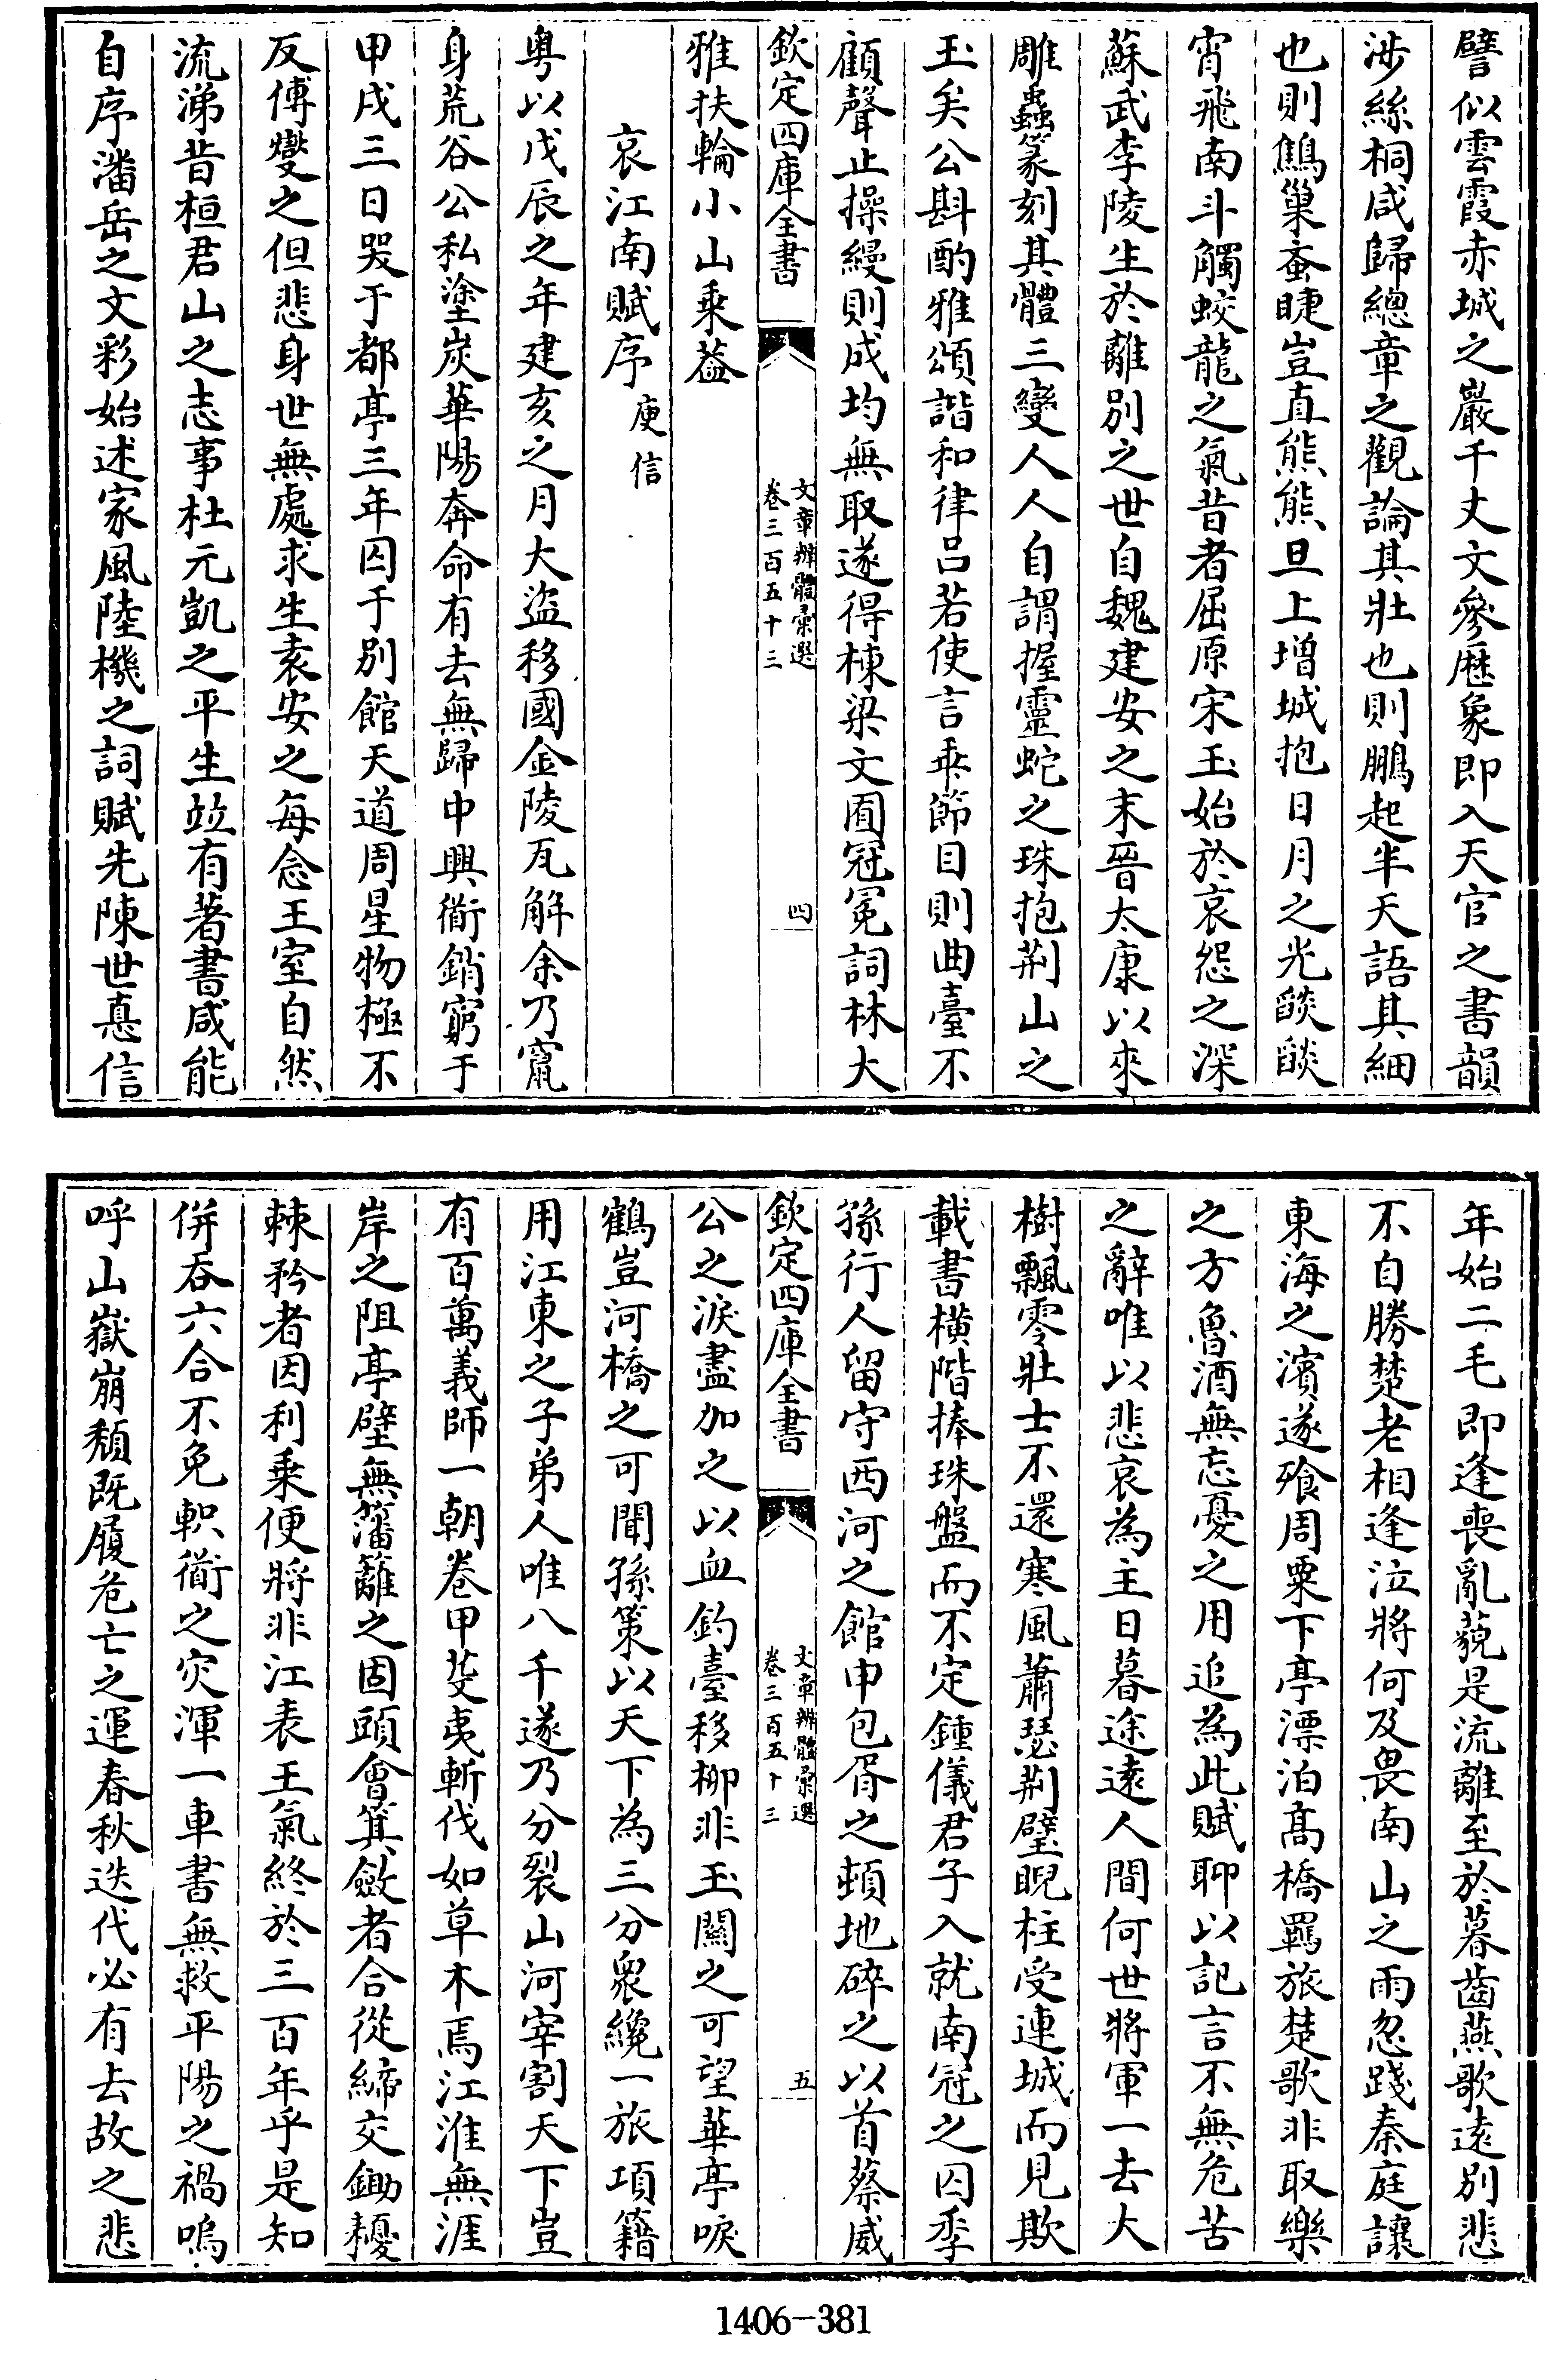 譬似雲霞赤城之巖千丈文參厯象即入天官之書韻
涉絲桐咸歸總章之觀論其壯也則鵬起半天語其細
也則鷦巢蚉睫豈直熊熊旦上增城抱日月之光燄燄
宵飛南斗觸蛟龍之氣昔者屈原宋玉始於哀怨之深
蘇武李陵生於離別之世自魏建安之末晉太康以來
雕蟲篆刻其體三變人人自謂握靈蛇之珠抱荆山之
玉矣公斟酌雅頌諧和律呂若使言乖節目則曲臺不
顧聲止操縵則成均無取遂得棟梁文囿冠冕詞林大
欽定四庫全書
文章辨體彚選
卷三百五十三
四
雅扶輪小山乗葢
哀江南賦序 庾信
粤以戊辰之年建亥之月大盜移國金陵瓦解余乃竄
身荒谷公私塗炭華陽奔命有去無歸中興衜銷窮于
甲戌三日哭于都亭三年囚于別館天道周星物極不
反傅燮之但悲身世無處求生袁安之每念王室自然
流涕昔桓君山之志事杜元凱之平生竝有著書咸能
自序潘岳之文彩始述家風陸機之詞賦先陳世悳信
年始二毛即逢喪亂藐是流離至於暮齒燕歌遠別悲
不自勝楚老相逢泣將何及畏南山之雨忽踐秦庭讓
東海之濱遂飧周粟下亭漂泊髙橋羈旅楚歌非取樂
之方魯酒無忘憂之用追為此賦聊以記言不無危苦
之辭唯以悲哀為主日暮途遠人間何世將軍一去大
樹飄零壯士不還寒風蕭瑟荆璧睨柱受連城而見欺
載書橫階捧珠盤而不定鍾儀君子入就南冠之囚季
孫行人留守西河之館申包胥之頓地碎之以首蔡威
欽定四庫全書
文章辨體彚選
卷三百五十三
五
公之淚盡加之以血釣臺移柳非玉關之可望華亭唳
鶴豈河橋之可聞孫策以天下為三分衆纔一旅項籍
用江東之子弟人唯八千遂乃分裂山河宰割天下豈
有百萬義師一朝卷甲芟夷斬伐如草木焉江淮無涯
岸之阻亭壁無藩籬之固頭會箕斂者合從締交鋤耰
棘矜者因利乗便將非江表王氣終於三百年乎是知
併吞六合不免軹衜之灾渾一車書無救平陽之禍嗚
呼山嶽崩頽既履危亡之運春秋迭代必有去故之悲
1406-381